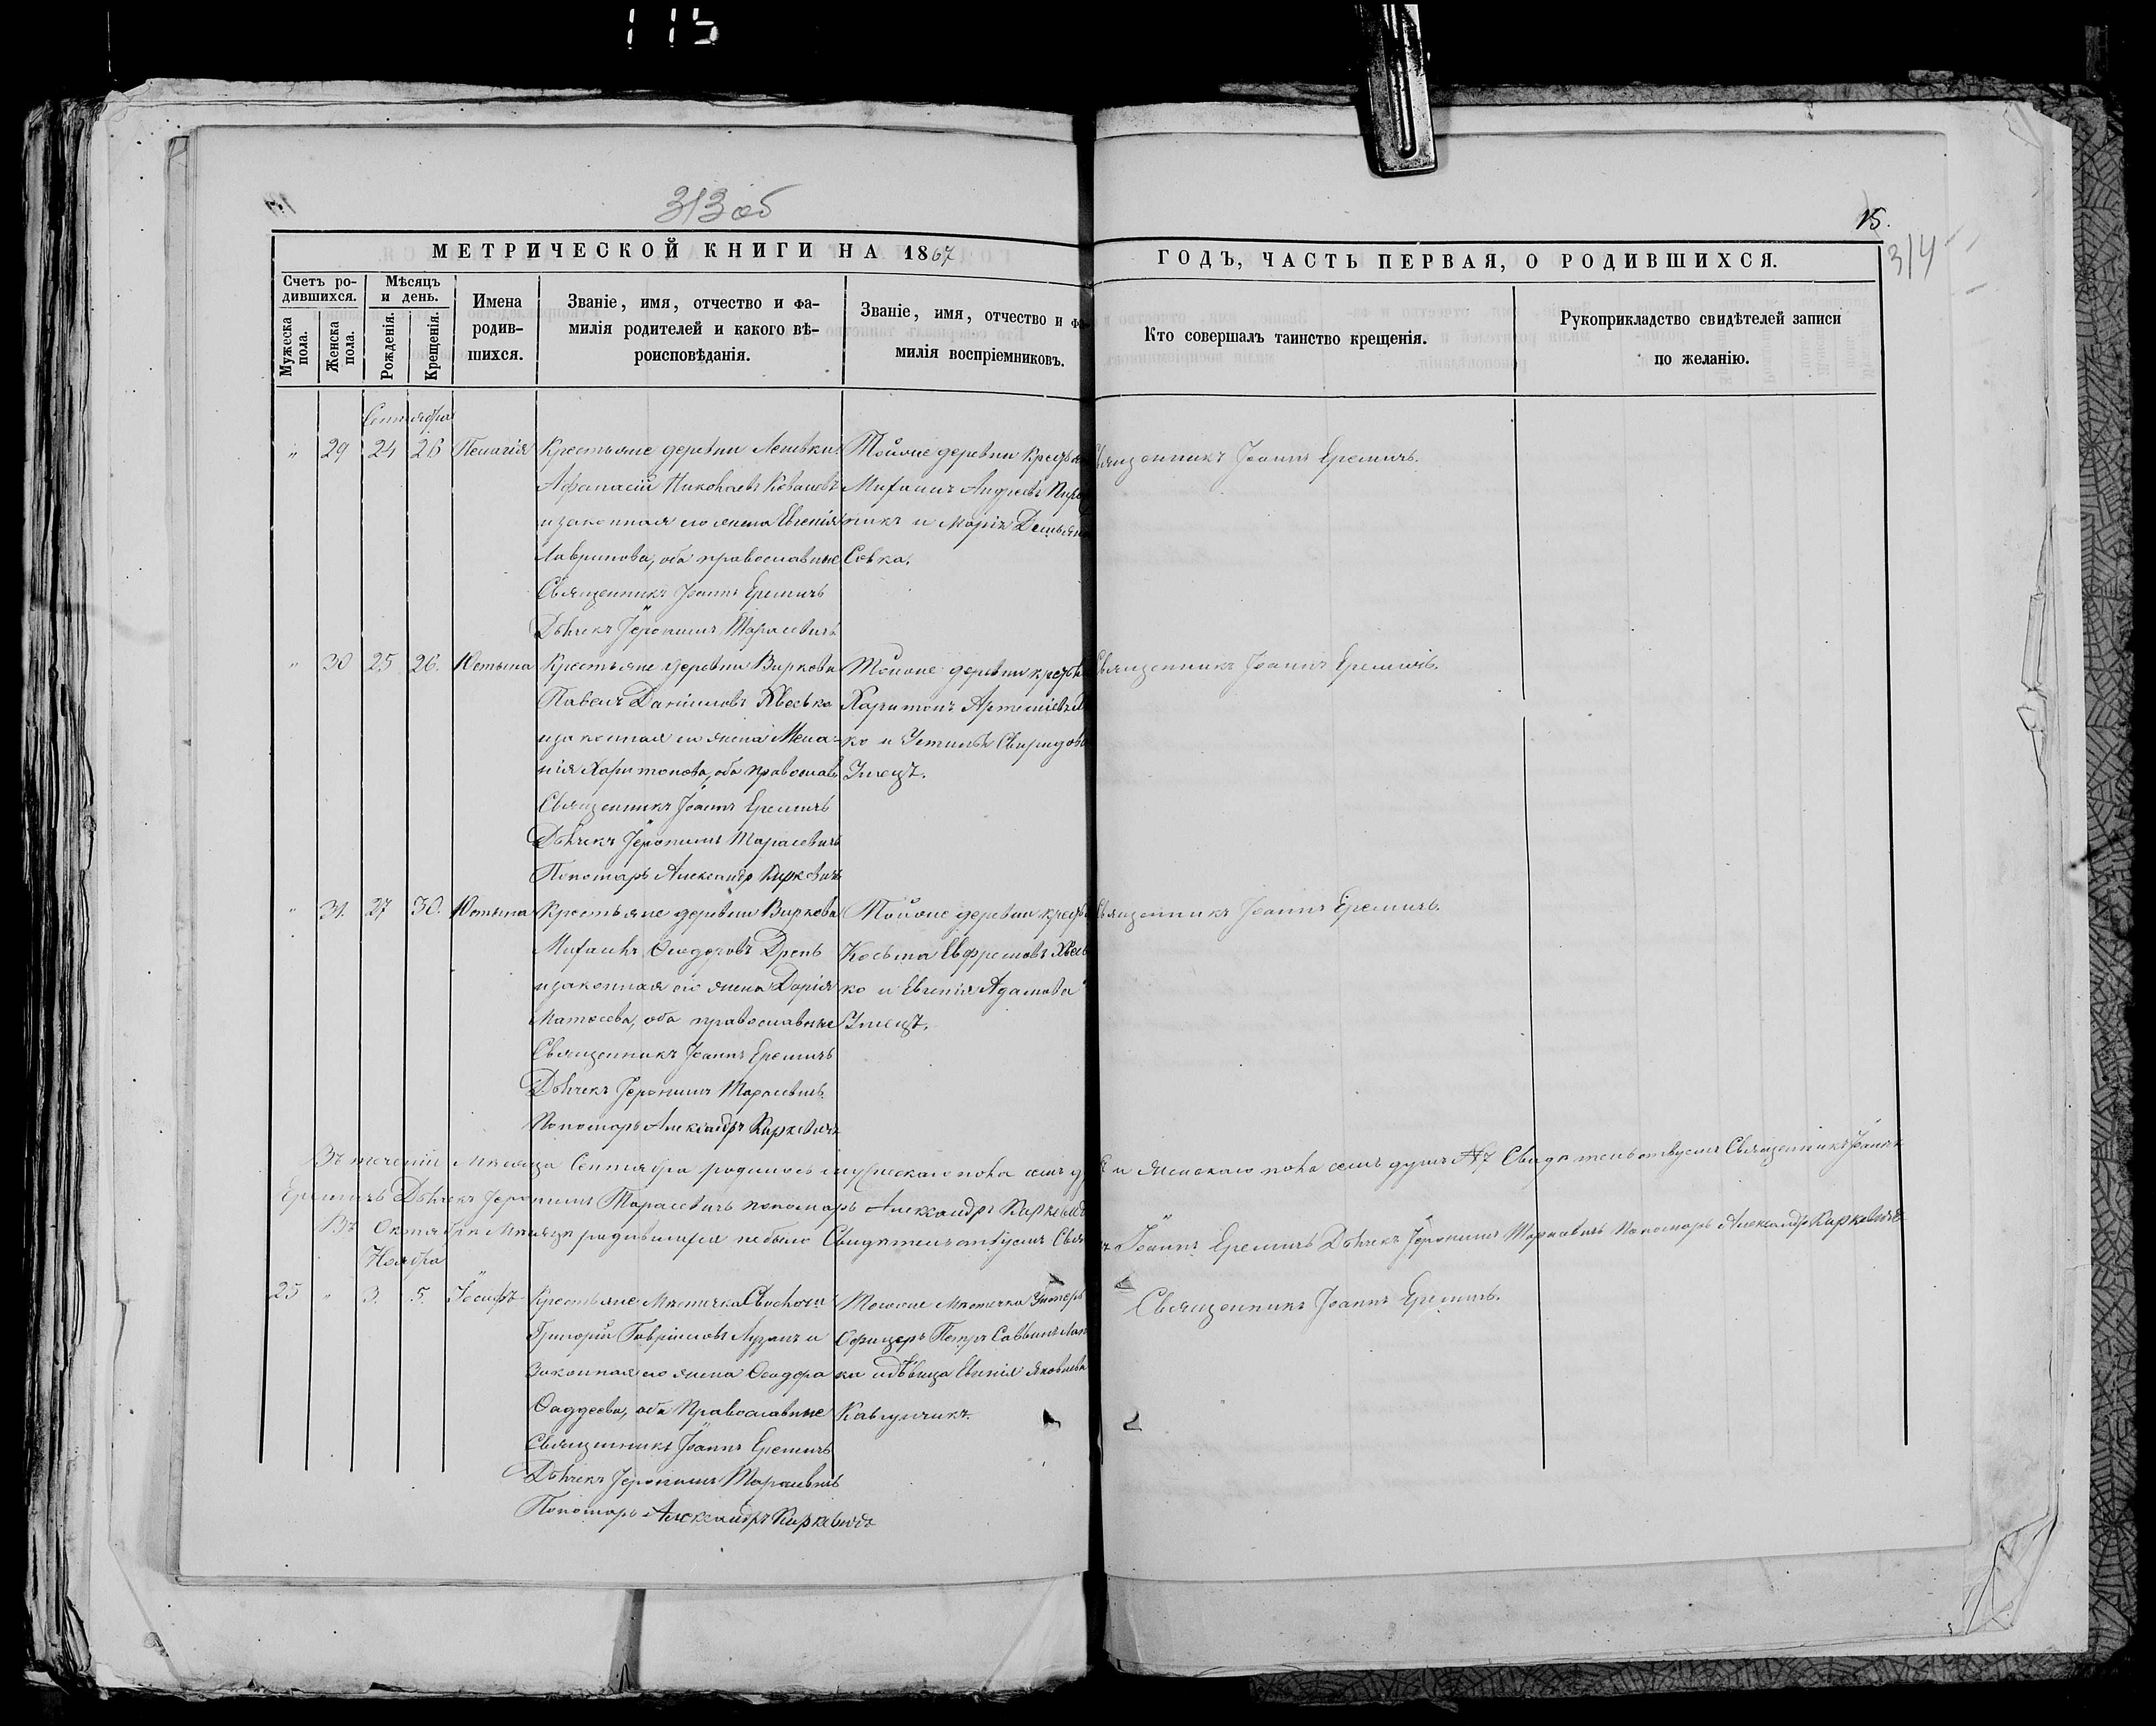 115
313 об
15.
314
МЕТРИЧЕСКОЙ КНИГИ НА 1867
ГОДЪ, ЧАСТЬ ПЕРВАЯ, О РОДИВШИХСЯ.
Счетъ ро-
дившихся.
Мужеска
пола.
Женска
пола.
Мѣсяцъ
и день.
Рожденія.
Крещенія.
Имена
родив-
шихся.
Званіе, имя, отчество и фа-
милія родителей и какого вѣ-
роисповѣданія.
Званіе, имя, отчество и фа-
милія воспріемниковъ.
Кто совершалъ таинство крещенія.
Рукоприкладство свидѣтелей записи
по желанію.
Сентября
" 29 24 26 Пелагія
Крестьяне деревни
Афанасій Николаевъ Ковалевъ
и законная его жена Евгенія
Лавринова, оба православные
Священникъ Іоаннъ Еремичъ
Дьячекъ Іеронимъ Тарасевичъ
Тойже деревни
Михаилъ Андреевъ
никъ и Марія
Совка.
Священникъ Іоаннъ Еремичъ.
" 30 25 26. Юстина
Крестьяне деревни Виркова
Павелъ Даніиловъ Хвесько
и законная его жена Мела-
нія Харитонова, оба православ
Священникъ Іоаннъ Еремичъ
Дьячекъ Іеронимъ Тарасевичъ
Пономарь Александръ Киркевичъ
Тойже деревни
Харитонъ
ко и Свиридова
Священникъ Іоаннъ Еремичъ.
" 31. 27 30. Юстина
Крестьяне деревни Виркова
Михаилъ Ѳеодоровъ Дрень
и законная его жена Дарія
Матѳеева, оба православные
Священникъ Іоаннъ Еремичъ
Дьячекъ Іеронимъ Тарасевичъ
Пономарь Александръ Киркевичъ
Тойже деревни
Косьма Ефремовъ Хвесь
ко и Евгенія Адамова
Священникъ Іоаннъ Еремичъ.
Въ теченіи Мѣсяца Сентября родилось мужескаго пола семь и женскаго пола семь душъ №7 Свидѣтельствуемъ Священникъ Іоаннъ
Еремичъ Дьячекъ Іеронимъ Тарасевичъ пономарь Александръ Киркевичъ
Въ Октябрѣ Мѣсяцѣ родившихся небыло Свидѣтельствуемъ Іоаннъ Еремичъ Дьячекъ Іеронимъ Тарасевичъ Пономарь Александръ Киркевичъ
Ноября
25 " 3. 5. Іосифъ
Крестьяне Мѣстечка
Григорій Гавріиловъ Лузанъ и
Законная его жена Ѳеодора
Ѳаддеева, оба Православные
Священникъ Іоаннъ Еремичъ
Дьячекъ Іеронимъ Тарасевичъ
Пономарь Александръ Киркевичъ
Тогоже Мѣстечка Унтеръ
Офицеръ Петръ Саввинъ
ка и дѣвица Евгенія Яковлева
Священникъ Іоаннъ Еремичъ.